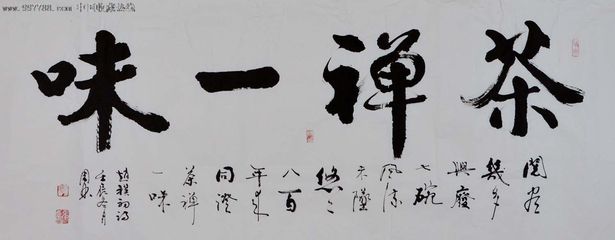 www.997788.com 中国收藏热线
茶禅一味
閱尽
幾多
興廢
七碗
风流
未墜
悠々
八百
年来
同證
茶禅
一味
趙樸初诗
壬辰冬月